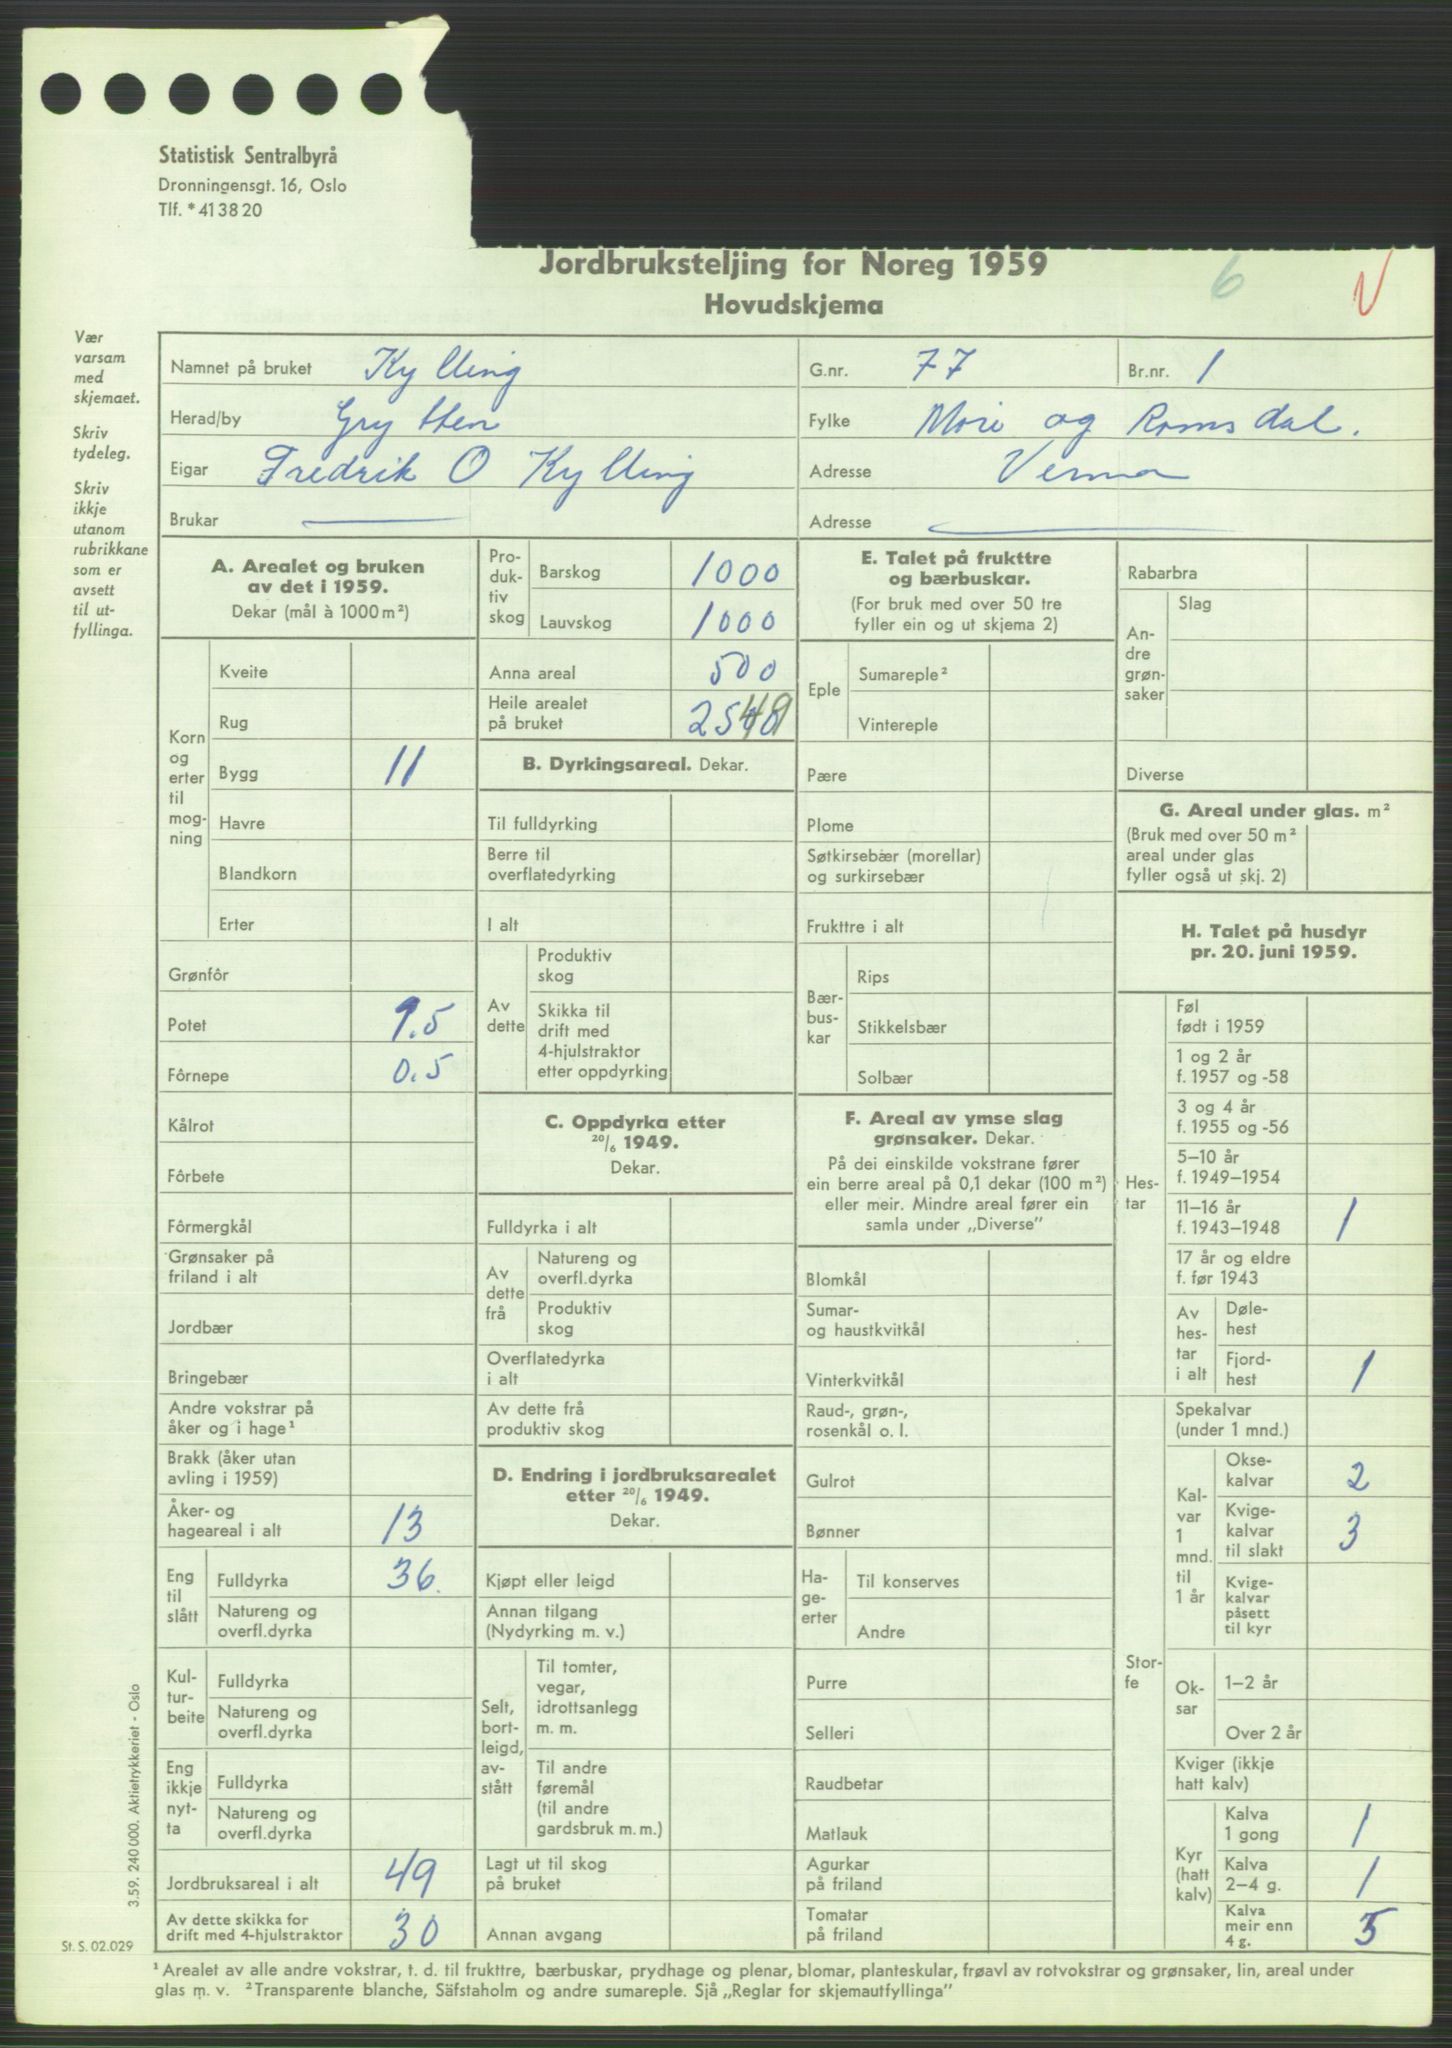 Statistisk Sentralbyrå
Dronningensgt. 16, Oslo
Tlf. * 41 38 20
Jordbruksteljing for Noreg 1959
Hovudskjema
6
V
Vær
varsam
med
skjemaet.
Skriv
tydeleg.
Skriv
ikkje
utanom
rubrikkane
som er
avsett
til ut-
fyllinga.
Namnet på bruket Kylling G.nr. 77 Br.nr. 1
Herad/by Grytten Fylke Møre og Romsdal.
Eigar Fredrik O Kylling Adresse Verma
Brukar Adresse
A. Arealet og bruken
av det i 1959.
Dekar (mål à 1000 m²)
Korn
og
erter
til
mog-
ning
Kveite
Rug
Bygg 11
Havre
Blandkorn
Erter
Grønfôr
Potet 1.5
Fôrnepe 0.5
Kålrot
Fôrbete
Fôrmergkål
Grønsaker på
friland i alt
Jordbær
Bringebær
Andre vokstrar på
åker og i hage¹
Brakk (åker utan
avling i 1959)
Åker- og
hageareal i alt 13
Eng
til
slått
Fulldyrka 36.
Natureng og
overfl.dyrka
Kul-
tur-
beite
Fulldyrka
Natureng og
overfl.dyrka
Eng
ikkje
nyt-
ta
Fulldyrka
Natureng og
overfl.dyrka
Jordbruksareal i alt 49
Av dette skikka for
drift med 4-hjulstraktor 30
Pro-
duk-
tiv
skog
Barskog 1000
Lauvskog 1000
Anna areal 500
Heile arealet
på bruket 2549
B. Dyrkingsareal. Dekar.
Til fulldyrking
Berre til
overflatedyrking
I alt
Av
dette
Produktiv
skog
Skikka til
drift med
4-hjulstraktor
etter oppdyrking
C. Oppdyrka etter
20/6 1949.
Dekar.
Fulldyrka i alt
Av
dette
frå
Natureng og
overfl.dyrka
Produktiv
skog
Overflatedyrka
i alt
Av dette frå
produktiv skog
D. Endring i jordbruksarealet
etter 20/6 1949.
Dekar.
Kjøpt eller leigd
Annan tilgang
(Nydyrking m. v.)
Selt,
bort-
leigd,
av-
stått
Til tomter,
vegar,
idrottsanlegg
m. m.
Til andre
føremål
(til andre
gardsbruk m. m.)
Lagt ut til skog
på bruket
Annan avgang
E. Talet på frukttre
og bærbuskar.
(For bruk med over 50 tre
fyller ein og ut skjema 2)
Eple
Sumareple²
Vintereple
Pære
Plome
Søtkirsebær (morellar)
og surkirsebær
Frukttre i alt
Bær-
bus-
kar
Rips
Stikkelsbær
Solbær
F. Areal av ymse slag
grønsaker. Dekar.
På dei einskilde vokstrane fører
ein berre areal på 0,1 dekar (100 m²)
eller meir. Mindre areal fører ein
samla under „Diverse”
Blomkål
Sumar-
og haustkvitkål
Vinterkvitkål
Raud-, grøn-,
rosenkål o. l.
Gulrot
Bønner
Ha-
ge-
erter
Til konserves
Andre
Purre
Selleri
Raudbetar
Matlauk
Agurkar
på friland
Tomatar
på friland
Rabarbra
An-
dre
grøn-
saker
Slag
Diverse
G. Areal under glas. m²
(Bruk med over 50 m²
areal under glas
fyller også ut skj. 2)
H. Talet på husdyr
pr. 20. juni 1959.
Hes-
tar
Føl
født i 1959
1 og 2 år
f. 1957 og -58
3 og 4 år
f. 1955 og -56
5–10 år
f. 1949–1954
11–16 år
f. 1943–1948 1
17 år og eldre
f. før 1943
Av
hes-
tar
i alt
Døle-
hest
Fjord-
hest 1
Stor-
fe
Spekalvar
(under 1 mnd.)
Kal-
var
1
mnd.
til
1 år
Okse-
kalvar 2
Kvige-
kalvar
til slakt 3
Kvige-
kalvar
påsett
til kyr
Ok-
sar
1–2 år
Over 2 år
Kviger (ikkje
hatt kalv)
Kyr
(hatt
kalv)
Kalva
1 gong 1
Kalva
2–4 g. 1
Kalva
meir enn
4 g. 5
¹ Arealet av alle andre vokstrar, t. d. til frukttre, bærbuskar, prydhage og plenar, blomar, planteskular, frøavl av rotvokstrar og grønsaker, lin, areal under
glas m. v. ² Transparente blanche, Säfstaholm og andre sumareple. Sjå „Reglar for skjemautfyllinga”
3.59. 240 000. Aktietrykkeriet - Oslo
St. S. 02.029